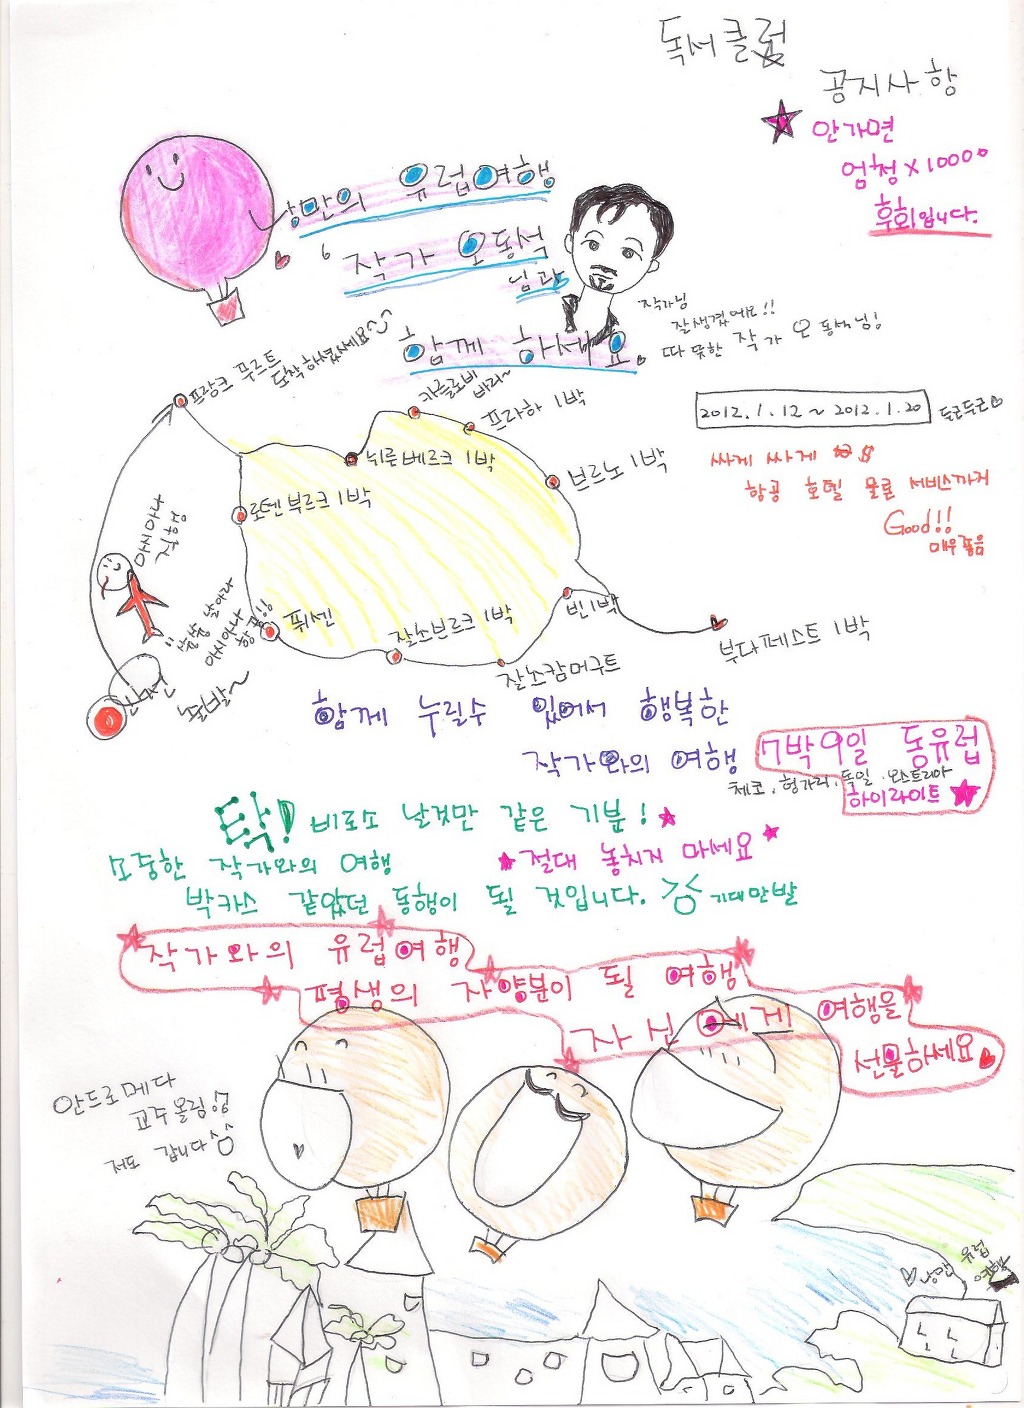 독서클럽
공지사항
★ 안가면
엄청 x 1000
후회입니다.
낭만의 유럽여행
작가 오동석
님과
함께 하세요.
작가님
잘생겼에요!!
따뜻한 작가 오동석님!
프랑크푸르트
도착하셨세요
카를로비
바리~
프라하 1박
뉘른베르크 1박
브르노 1박
로텐부르크 1박
2012.1.12 ~ 2012.1.20 두근두근
싸게 싸게
항공 호텔 물론 서비스까지
Good!!
매우좋음
아시아나
슝슝 날아라
아시아나
항공!!
퓌센
잘츠브르크 1박
빈 1박
부다페스트 1박
잘츠캄머구트
출발~
함께 누릴수 있어서 행복한
작가와의 여행
7박9일 동유럽
체코, 헝가리, 독일, 오스트리아
하이라이트
탁! 비로소 날것만 같은 기분!
소중한 작가와의 여행
절대 놓치지 마세요
박카스 같았던 동행이 될 것입니다. 기대만발
작가와의 유럽여행
평생의 자양분이 될 여행
자신에게 여행을
선물하세요
안드로메다
교주 올림
저도 갑니다
낭만 유럽
여행